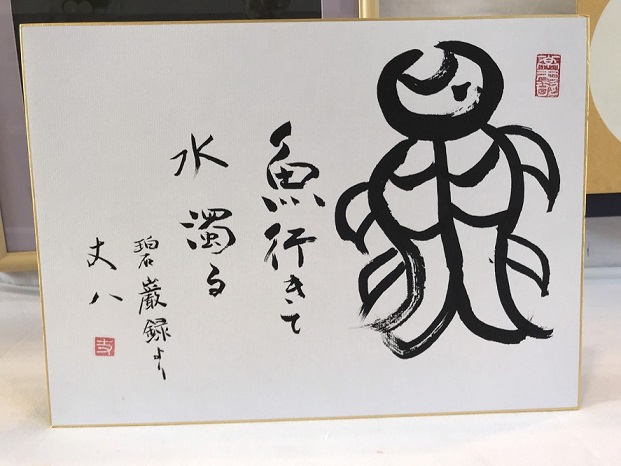 魚行きて
水濁る
碧巌録より
丈八